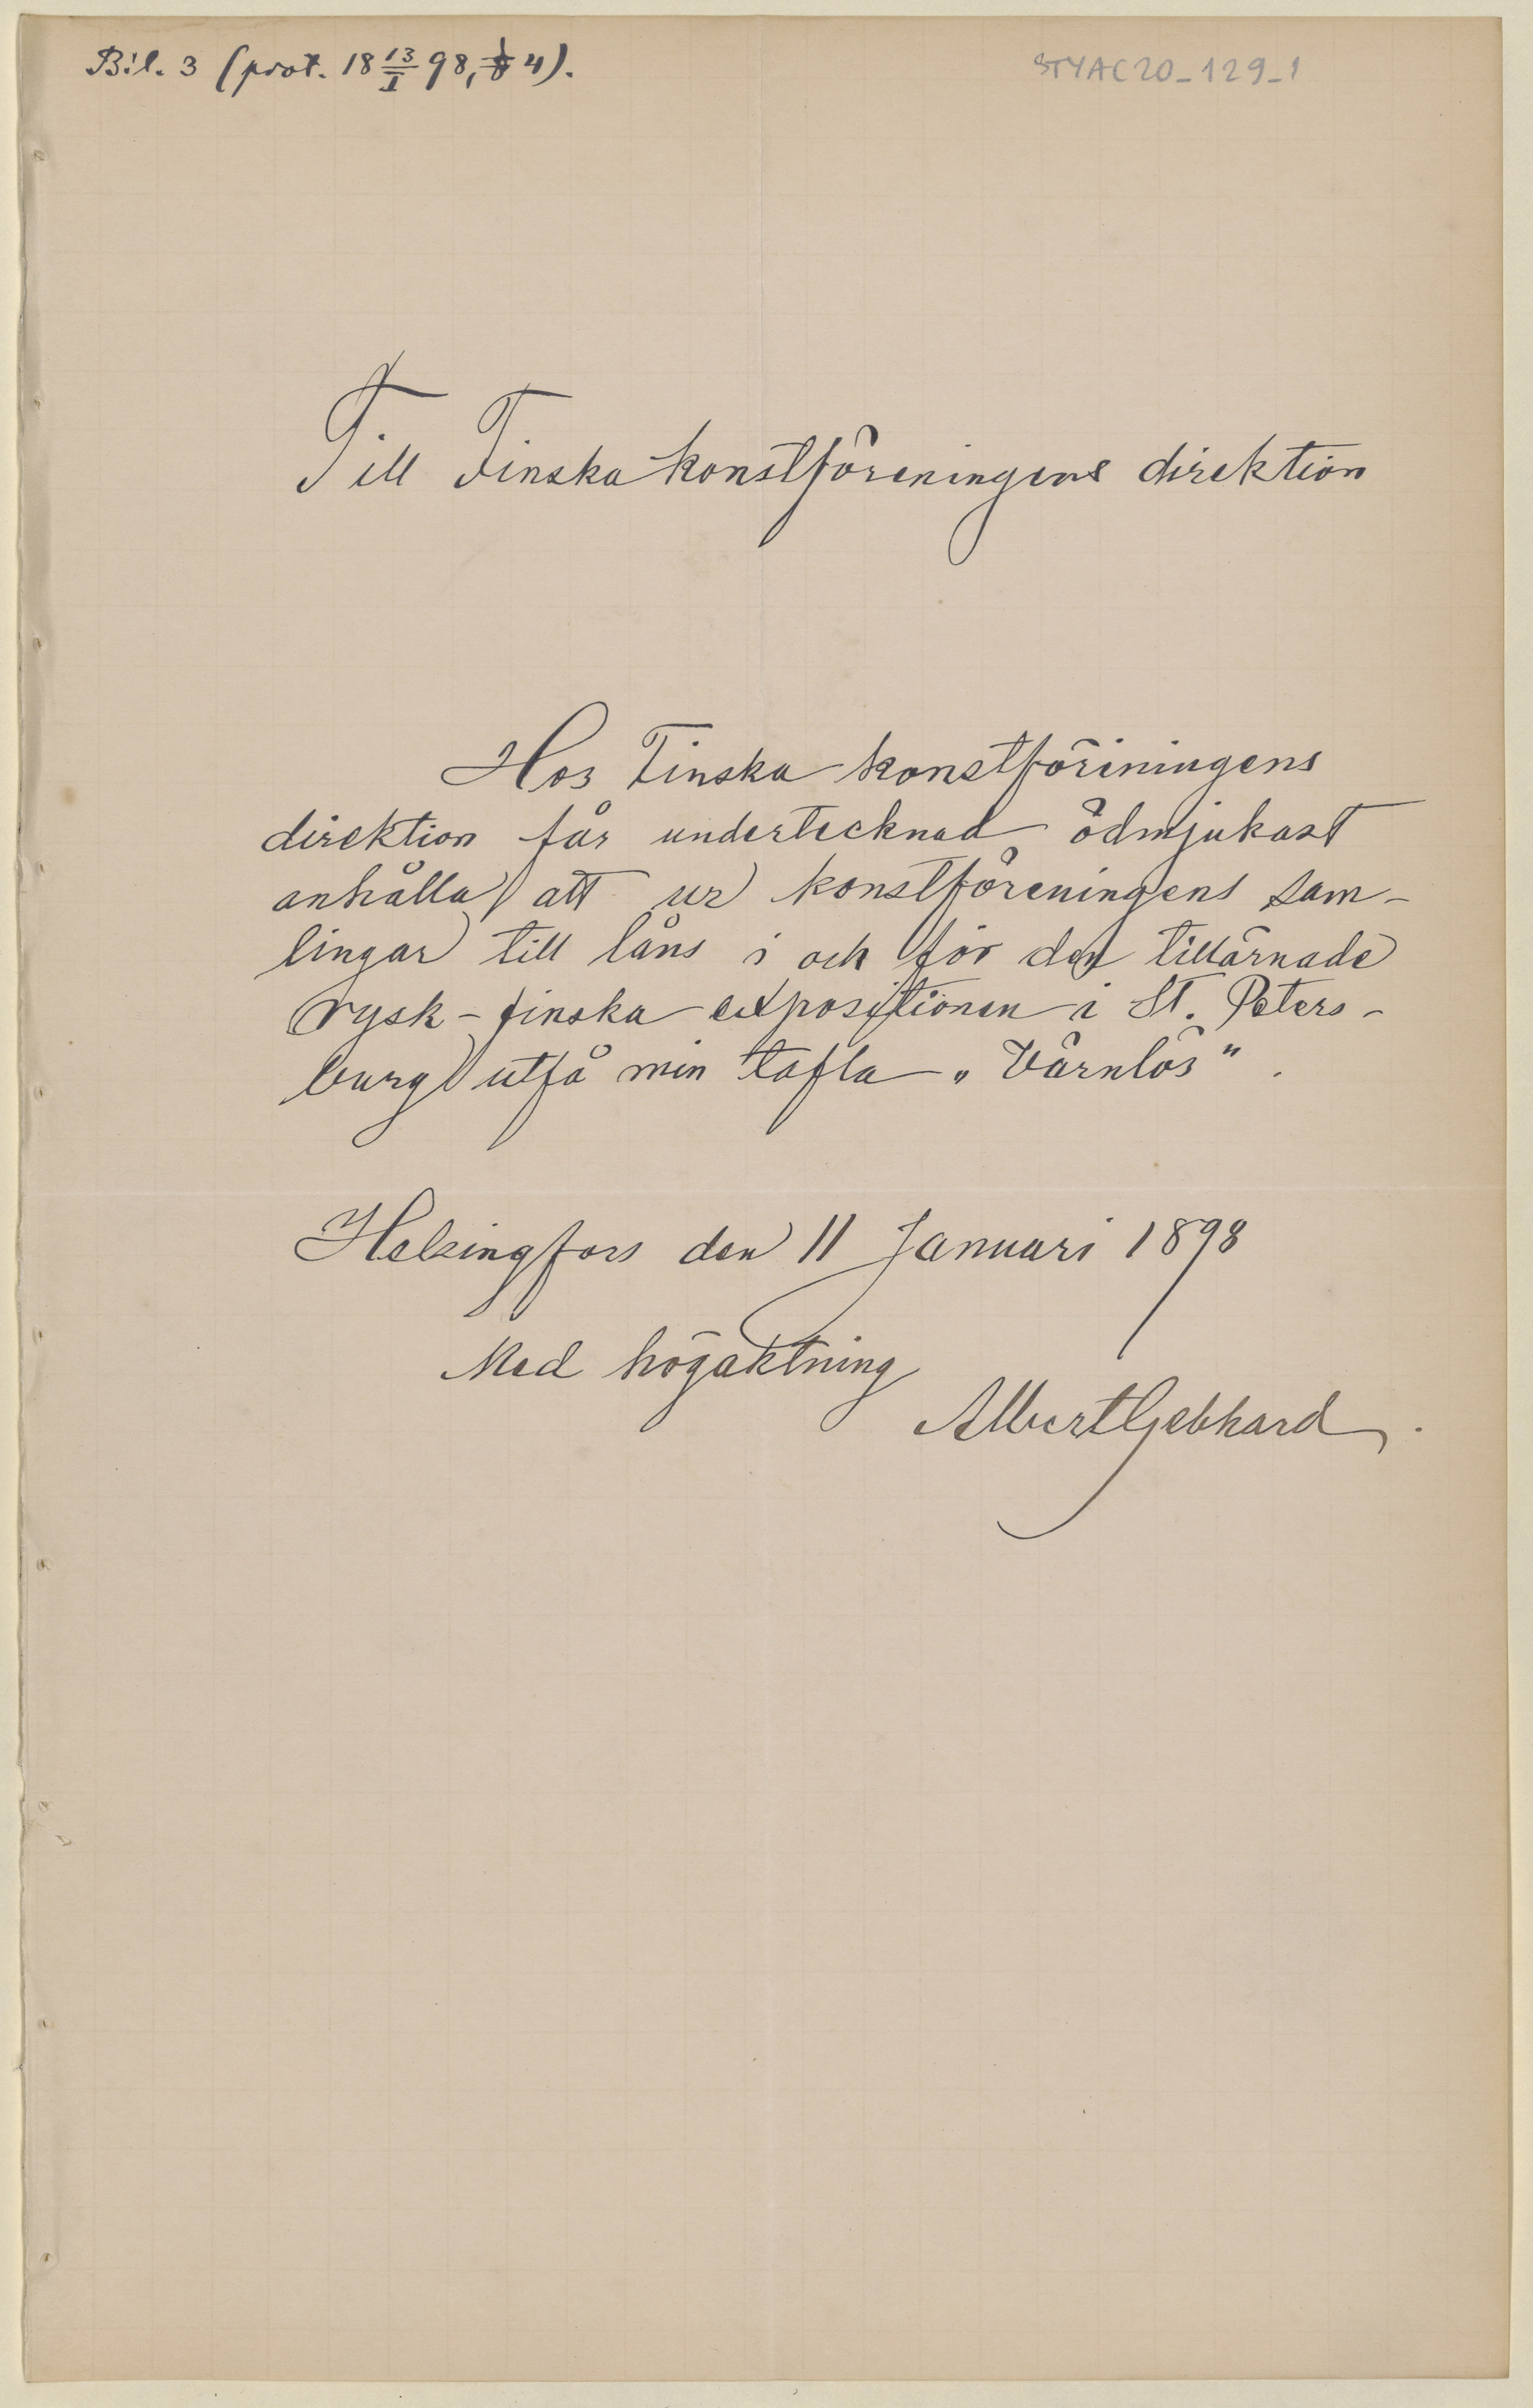 Bil. 3 (prot. 18 13/I 98, § 4).
STYAC20_129_1
Till Finska konstföreningens direktion
Hos Finska konstföriningens
direktion får undertecknad ödmjukast
anhålla att ur konstföreningens sam-
lingar till låns i och för den tillärnade
rysk-finska expositionen i St. Peters-
burg utfå min tafla „Värnlös".
Helsingfors den 11 Januari 1898
Med högaktning
Albert Gebhard.